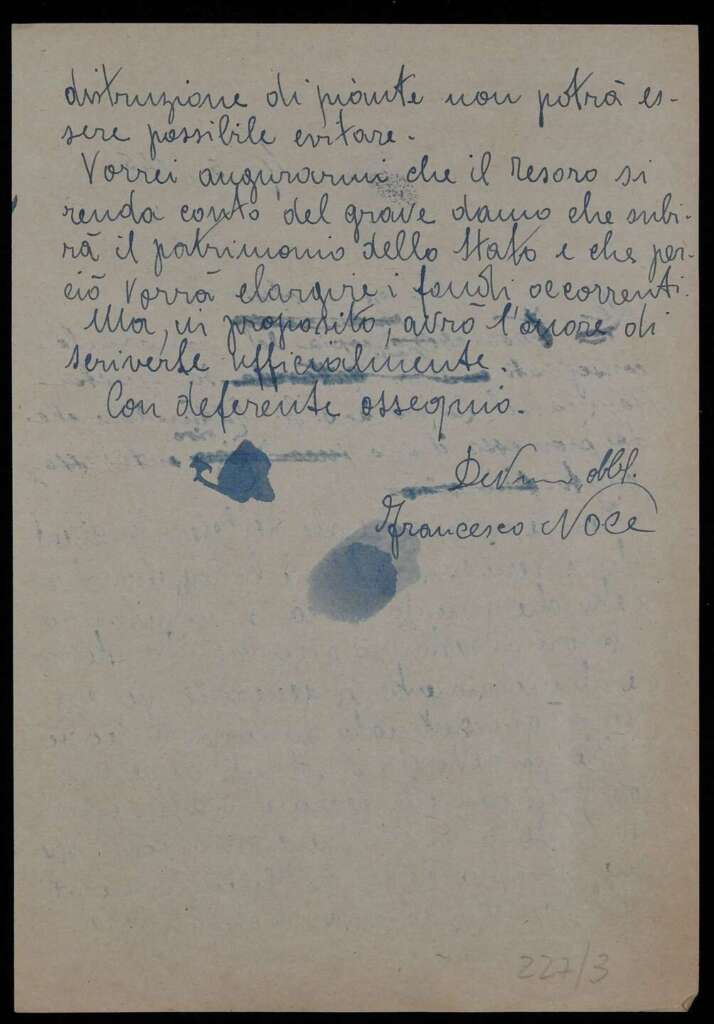 distruzione di piante non potrà es-
sere possibile evitare.
Vorrei augurarmi che il Tesoro si
renda conto del grave danno che subi-
rà il patrimonio dello Stato e che per-
ciò vorrà elargire i fondi occorrenti.
Ma, in proposito, avrò l'onore di
scriverle ufficialmente.
Con deferente ossequio.
obbl.
Francesco Noce
227/3